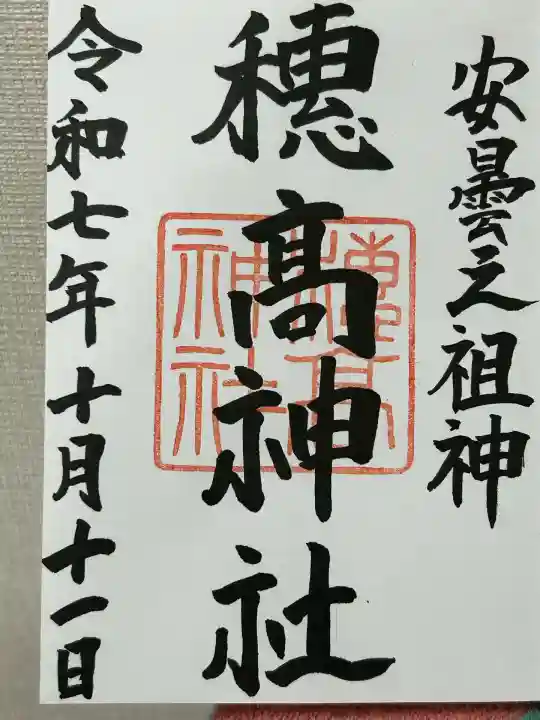 安曇之祖神
穗髙神社
穗高神社
令和七年十月十一日